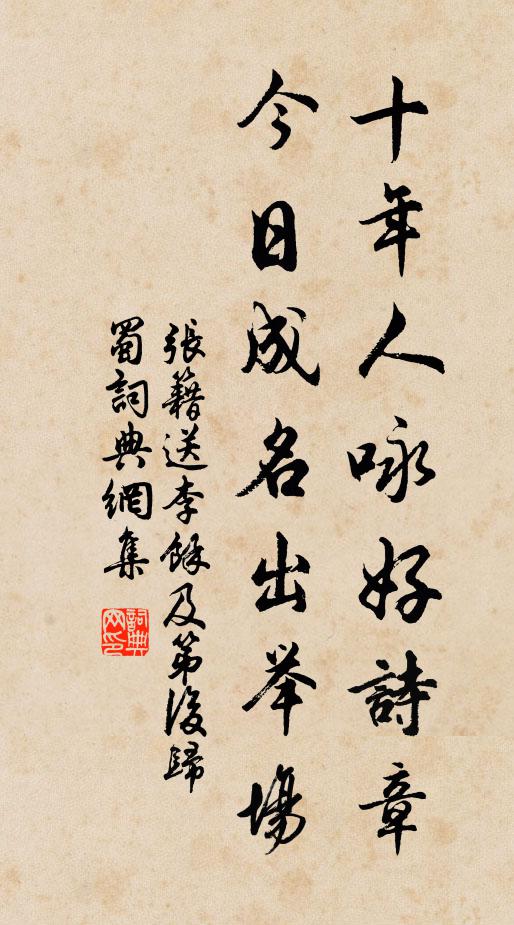 十年人咏好詩章
今日成名出举場
張籍送李餘及第後歸
蜀詞典網集
詞典
网印